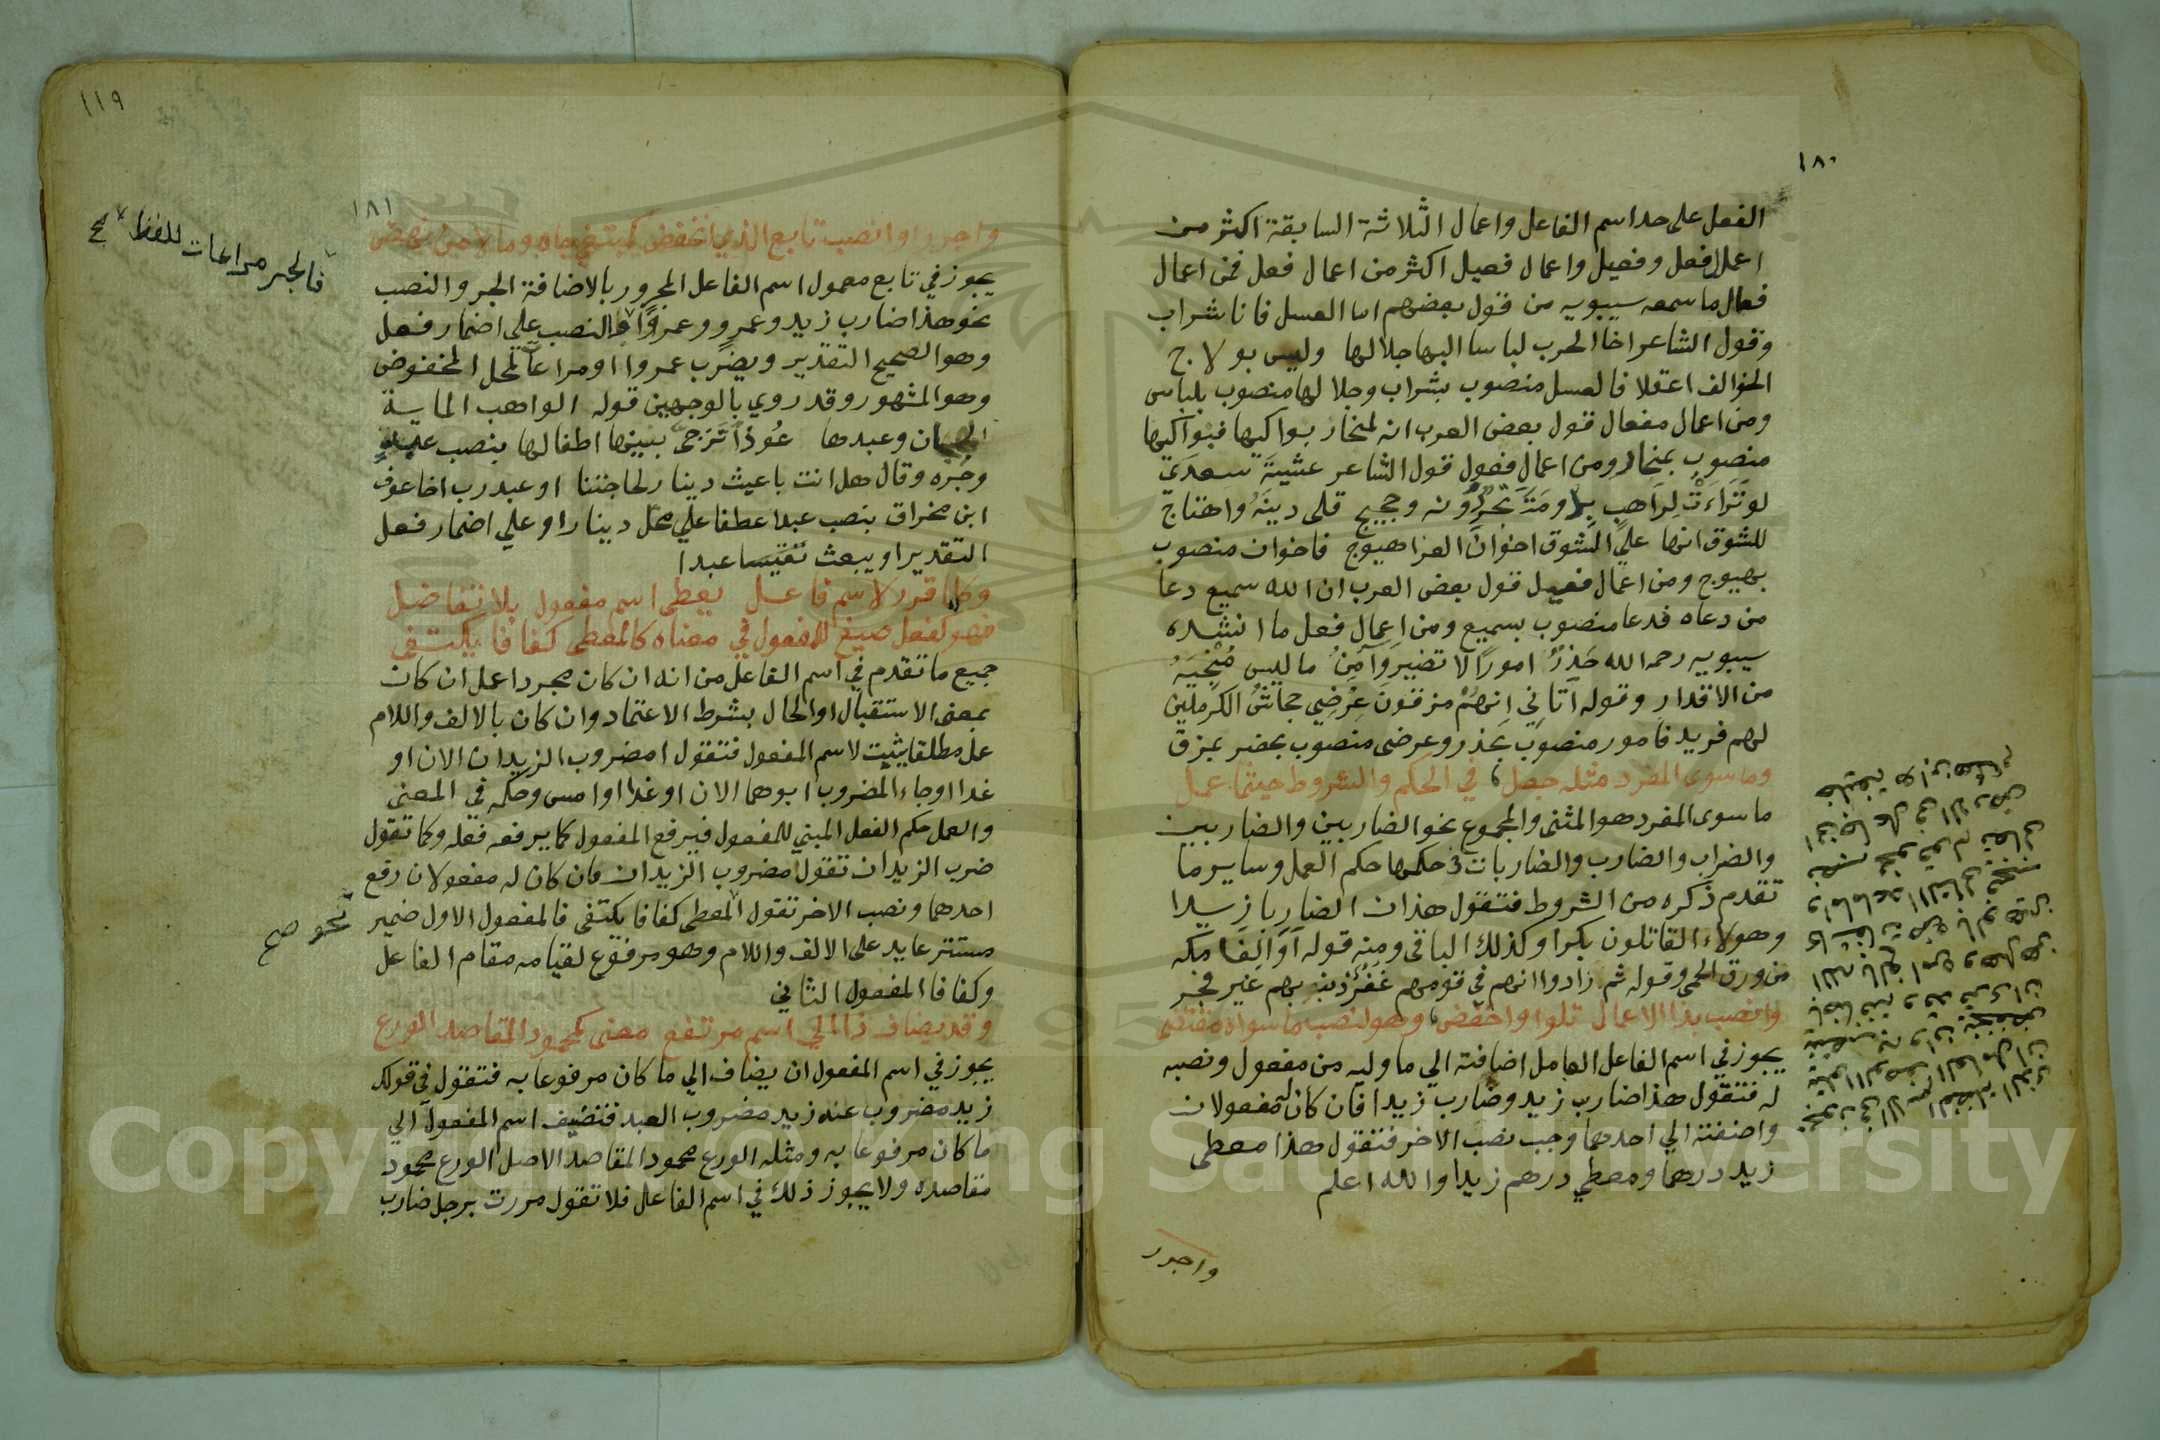 ١٨٠
الفعل على حد اسم الفاعل واعمال الثلاثة السابقة اكثر من
اعمال فعل وفعيل واعمال فعيل اكثر من اعمال فعل فمن اعمال
فعال ما سمعه سيبويه من قول بعضهم اما العسل فانا شراب
وقول الشاعر اخا الحرب لباسا اليها جلالها وليس بولاج
الخوالف اعقلا فالعسل منصوب بشراب وجلالها منصوب بلباس
ومن اعمال مفعال قول بعض العرب انه لمنحار بوايكها فبوايكها
منصوب بمنحار ومن اعمال فعول قول الشاعر عشية سعدى
لو تراءت لراهب بدومة تجر دونه وحجيج قلى دينه واهتاج
للشوق انها على الشوق اخوان العزا هيوج فاخوان منصوب
بهيوج ومن اعمال فعيل قول بعض العرب ان الله سميع دعا
من دعاه فدعا منصوب بسميع ومن اعمال فعل ما انشده
سيبويه رحمه الله حذر امورا لا تضير وآمن ما ليس منجيه
من الاقدار وقوله اتاني انهم مزقون عرضي جحاش الكرملين
لهم فريد فامور منصوب بحذر وعرضي منصوب بمزق
وما سوى المفرد مثله جعل في الحكم والشروط حيثما عمل
ما سوى المفرد هو المثنى والمجموع نحو الضاربين والضاربين
والضراب والضارب والضاربات فحكمها حكم العمل وساير ما
تقدم ذكره من الشروط فتقول هذان الضاربا زيدا
وهولاء القاتلون بكرا وكذلك الباقي ومنه قوله اوالفا مكه
من ورق الحمي وقوله ثم زادوا انهم في قومهم غفر ذنبهم غير فجر
وانصب بذا الاعمال تلوا واخفض وهو لنصب ما سواه مقتضي
يجوز في اسم الفاعل العامل اضافته الي ما وليه من مفعول ونصبه
له فتقول هذا ضارب زيد وضارب زيدا فان كان له مفعولان
واضفته الي احدهما وجب نصب الاخر فتقول هذا معطى
زيد درهما ومعطي درهم زيدا والله اعلم
واجرر
١١٩
١٨١
واجرر او انصب تابع الذي انخفض كمبتغي جاه ومالا من نهض
يجوز في تابع معمول اسم الفاعل المجرور بالاضافة الجر والنصب
نحو هذا ضارب زيد وعمرو وعمروا والنصب علي اضمار فعل
وهو الصحيح التقدير ويضرب عمروا او مراعاة لمحل المخفوض
وهو المشهور وقد روي بالوجهين قوله الواهب الماية
الهجان وعبدها عوذا تزجى بينها اطفالها بنصب عبد
وجره وقال هل انت باعث دينار لحاجتنا او عبد رب اخا عوف
ابن مخراق بنصب عبد عطفا علي محل دينار او علي اضمار فعل
التقدير او يبعث عبدا
وكلما قرر لاسم فاعل يعطي اسم مفعول بلا تفاضل
فهو كفعل صيغ للمفعول في معناه كالمعطى كفافا يكتفي
جميع ما تقدم في اسم الفاعل من انه ان كان مجردا عمل ان كان
بمعنى الاستقبال او الحال بشرط الاعتماد وان كان بالالف واللام
عمل مطلقا يثبت لاسم المفعول فتقول امضروب الزيدان الان او
غدا او جاء المضروب ابوهما الان او غدا او امس وحكمه في المعنى
والعمل حكم الفعل المبني للمفعول فيرفع المفعول كما يرفعه فعله وكما تقول
ضرب الزيدان تقول امضروب الزيدان فان كان له مفعولان رفع
احدهما ونصب الاخر تقول المعطى كفافا يكتفى فالمفعول الاول ضمير
مستتر عايد على الالف واللام وهو مرفوع لقيامه مقام الفاعل
وكفافا المفعول الثاني
وقد يضاف ذا الي اسم مرتفع معنى كمحمود المقاصد الورع
يجوز في اسم المفعول ان يضاف الي ما كان مرفوعا به فتقول في قولك
زيد مضروب عبده زيد مضروب العبد فتضيف اسم المفعول الي
ما كان مرفوعا به ومثله الورع محمود المقاصد الاصل الورع محمود
مقاصده ولا يجوز ذلك في اسم الفاعل فلا تقول مررت برجل ضارب
فالجر مراعات للفظ
نحو صح
Copyright © King Saud University